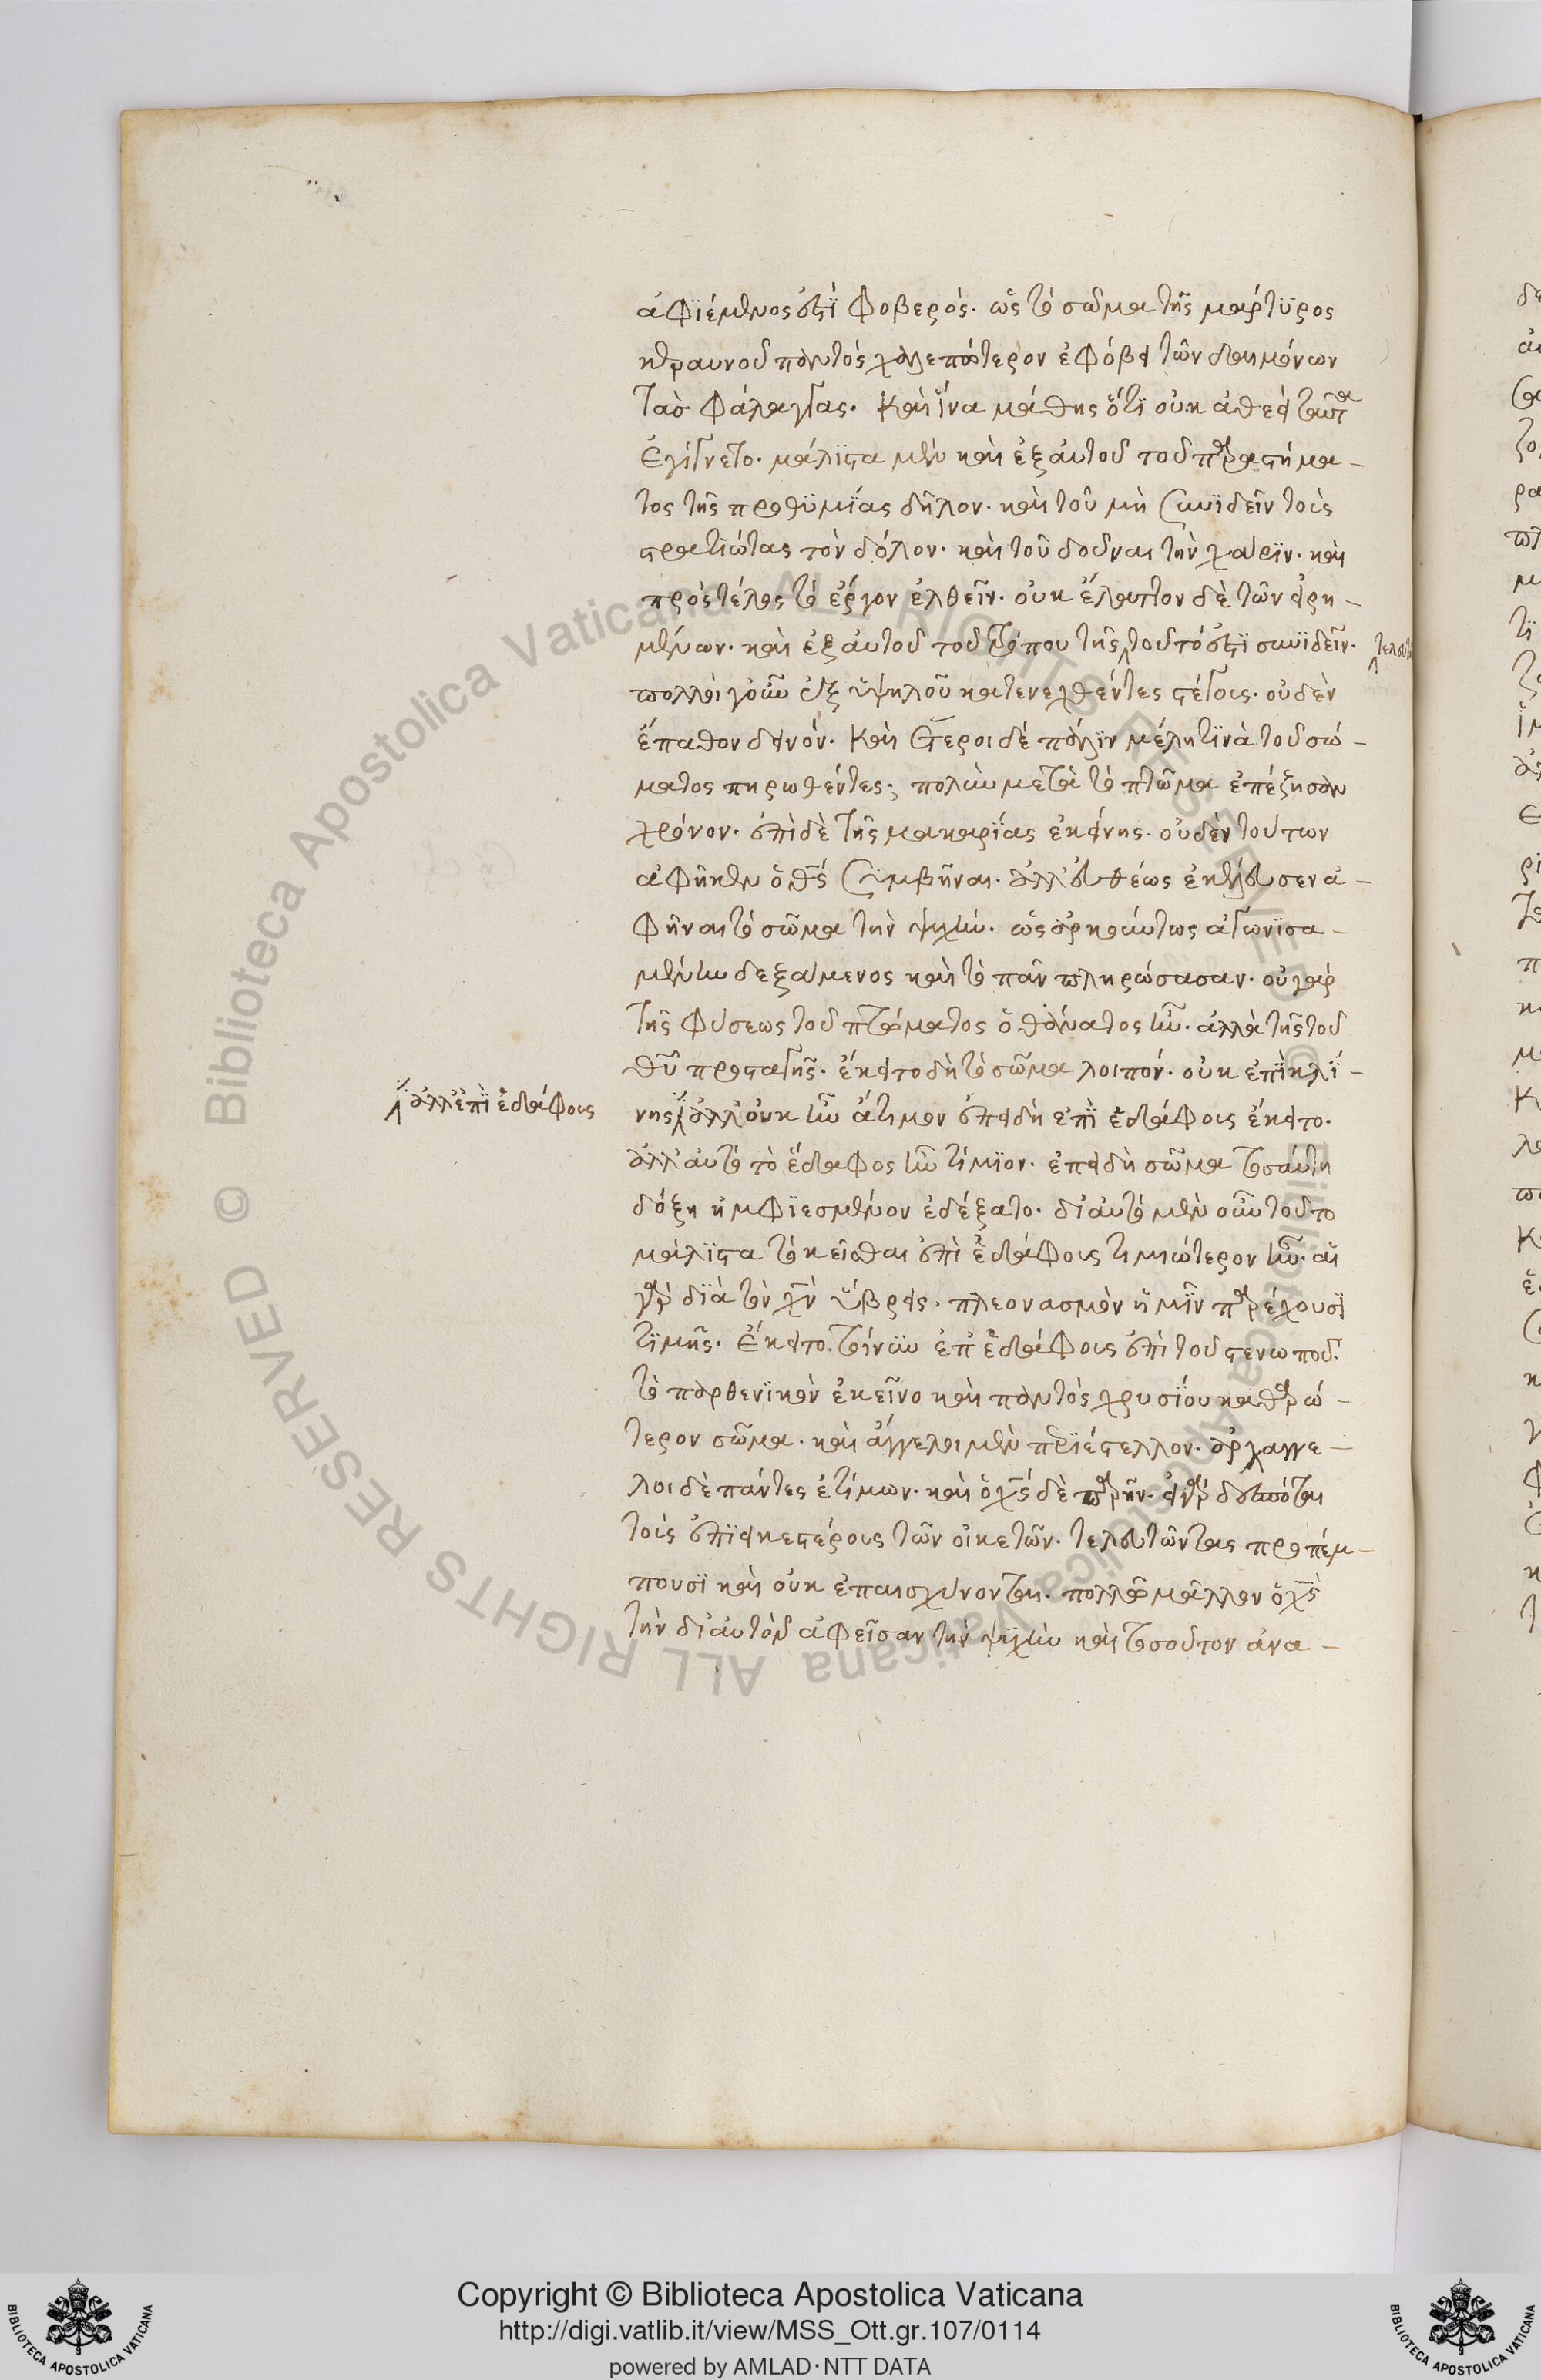 ἀφϊέμενος ἐστϊ φοβερός. ὡς τὸ σῶμα τῆς μάρτϋρος
κεραυνοῦ παντὸς χαλεπώτερον ἐφόβει τῶν δαιμόνων
τὰσ φάλαγγας. Καὶ ἵνα μάθης ὅτϊ οὐκ ἀθεεὶ ταῦτα
ἐγίγνετο. μάλϊστα μὲν καὶ ἐξ αὐτοῦ τοῦ παραστήμα-
τος τῆς προθϋμϊας δῆλον. καὶ τοῦ μὴ συνϊδεῖν τοὺς
στρατϊώτας τὸν δόλον. καὶ τοῦ δοῦναι τὴν χάρϊν. καὶ
πρὸς τέλος τὸ ἔργον ἐλθεῖν. οὐκ ἔλαττον δὲ τῶν εἰρη-
μένων. καὶ ἐξ αὐτοῦ τοῦ τρόπου τῆς τοῦτό ἐστϊ συνϊδεῖν.
πολλοὶ γοῦν ἐξ ὑψηλοῦ κατενεχθέντες στέγους. οὐδὲν
ἔπαθον δεινόν. Καὶ ἕτεροι δὲ πάλϊν μέλη τϊνὰ τοῦ σώ-
ματος πηρωθέντες. πολὺν μετὰ τὸ πτῶμα ἐπέζησαν
χρόνον. ἐπὶ δὲ τῆς μακαρϊας ἐκείνης. οὐδὲν τούτων
ἀφῆκεν ὁ θς συμβῆναι. ἀλλ' εὐθέως ἐκέλευσεν ἀ-
φῆναι τὸ σῶμα τὴν ψυχήν. ὡς ἀρκούντως ἀγωνϊσα-
μένην δεξάμενος καὶ τὸ πᾶν πληρώσασαν. οὐ γὰρ
τῆς φύσεως τοῦ πτώματος ὁ θάνατος ἦν. ἀλλὰ τῆς τοῦ
θυ προσταγῆς. ἔκειτο δὴ τὸ σῶμα λοιπόν. οὐκ ἐπϊ κλϊ-
ἀλλ' ἐπϊ ἐδάφους
νης ἀλλ' οὐκ ἦν ἄτιμον ἐπειδὴ ἐπϊ ἐδάφους ἔκειτο.
ἀλλ' αὐτὸ τὸ ἔδαφος ἦν τίμϊον. ἐπειδὴ σῶμα τοσαύτη
δόξη ἠμφϊεσμένον ἐδέξατο. δι' αὐτὸ μὲν οὖν τοῦτο
μάλϊστα τὸ κεῖσθαι ἐπὶ ἐδάφους τιμιώτερον ἦν. αἱ
γὰρ δϊὰ τὸν χν ὕβρεις. πλεονασμὸν ἡμῖν παρέχουσϊ
τϊμῆς. Ἔκειτο τοίνυν ἐπ' ἐδάφους ἐπὶ τοῦ στενωποῦ.
τὸ παρθενϊκὸν ἐκεῖνο καὶ παντὸς χρυσϊου καθαρώ-
τερον σῶμα. καὶ ἄγγελοι μὲν περϊέστελλον. ἀρχάγγε-
λοι δὲ πάντες ἐτίμων. καὶ ὁ χς δὲ παρῆν. εἰ γὰρ δεσπόται
τοὺς ἐπϊεικεστέρους τῶν οἰκετῶν. τελευτῶντας προπέμ-
πουσϊ καὶ οὐκ ἐπαισχύνονται. πολλῶ μᾶλλον ὁ χς
τὴν δι' αὐτὸν ἀφεῖσαν τὴν ψυχὴν καὶ τοσοῦτον ἀνα-
Copyright © Biblioteca Apostolica Vaticana
http://digi.vatlib.it/view/MSS_Ott.gr.107/0114
powered by AMLAD·NTT DATA